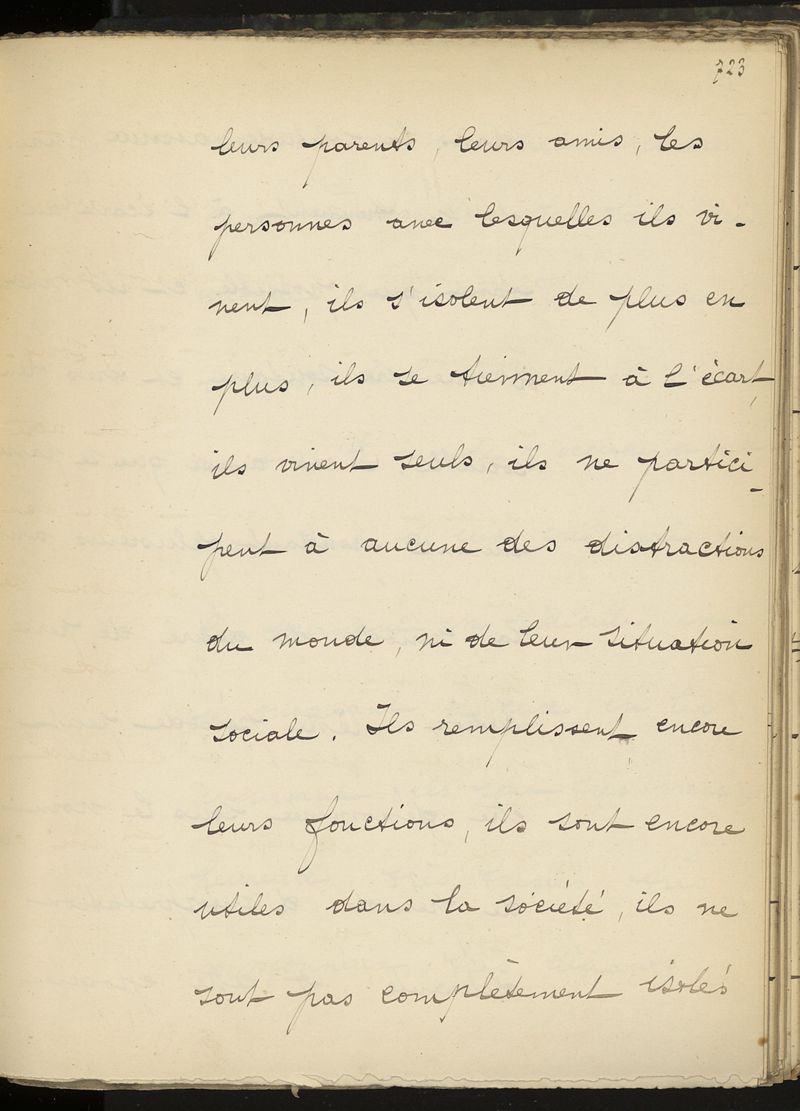 723
leurs parents, leurs amis, les
personnes avec lesquelles ils vi-
vent, ils s'isolent de plus en
plus, ils se tiennent à l'écart,
ils vivent seuls, ils ne partici-
pent à aucune des distractions
du monde, ni de leur situation
sociale. Ils remplissent encore
leurs fonctions, ils sont encore
utiles dans la société, ils ne
sont pas complètement isolés